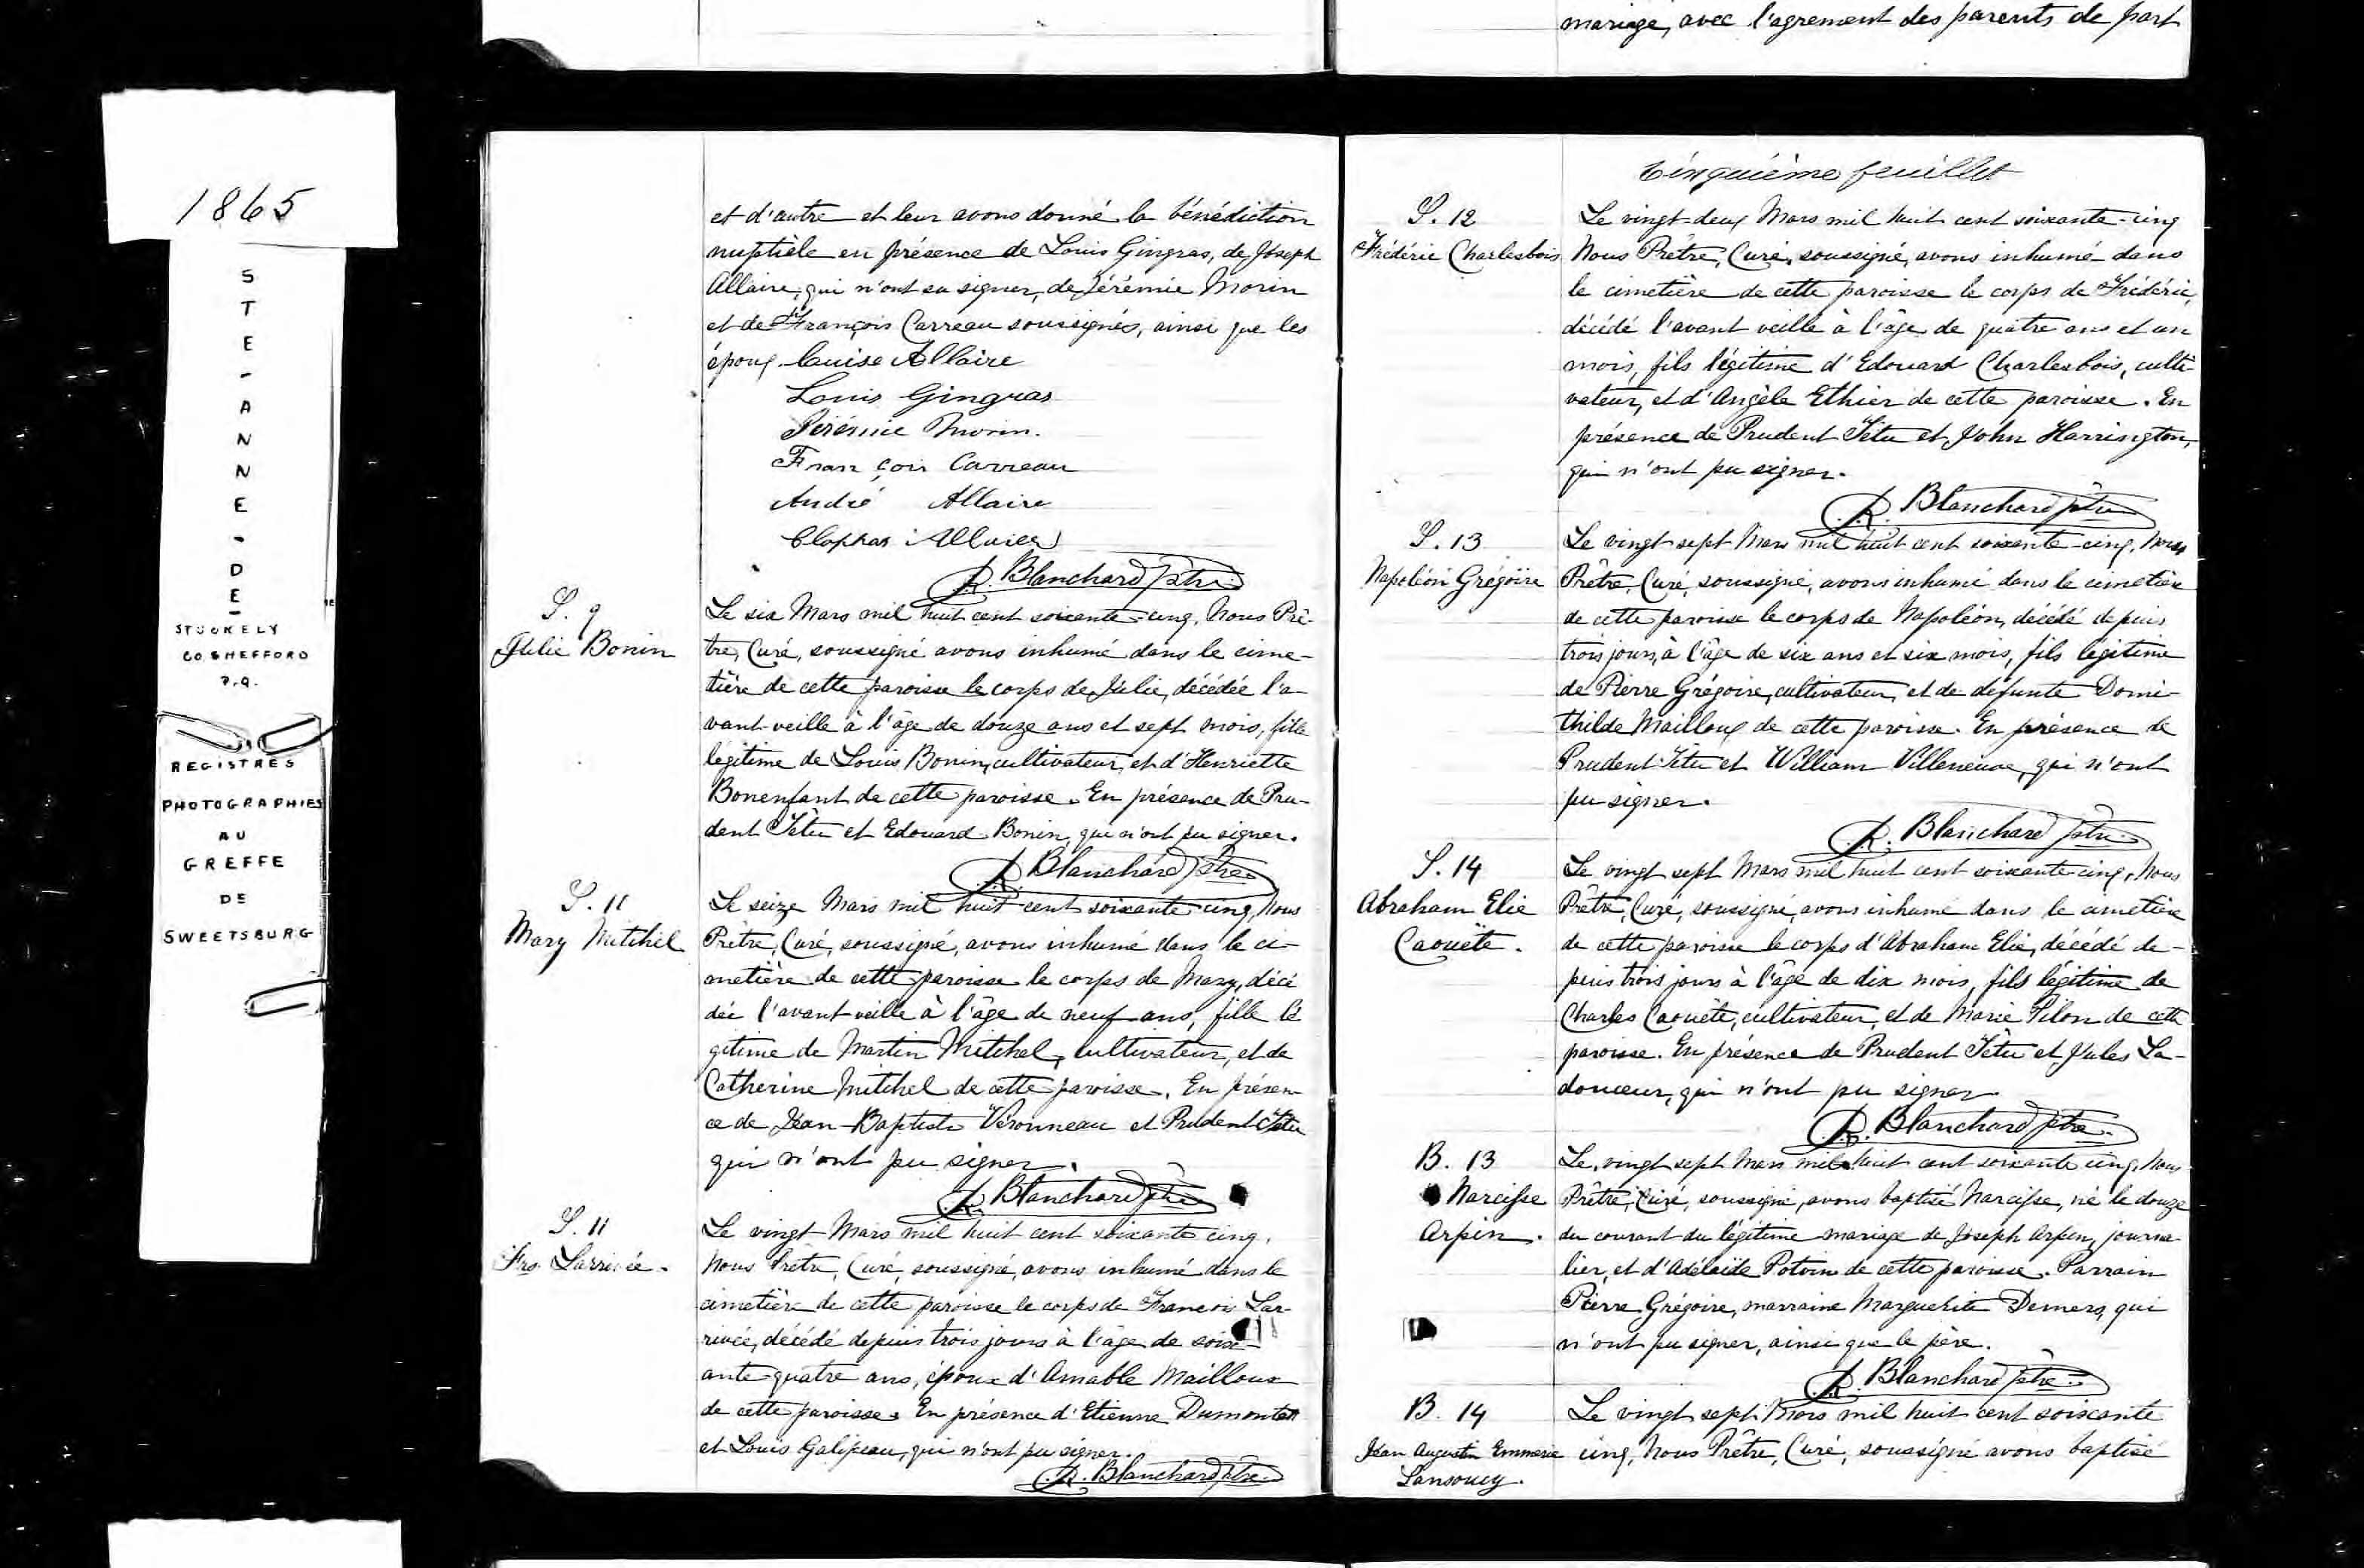 mariage, avec l'agrement des parents de part
1865
S
T
E
-
A
N
N
E
-
D
E
-
STUKELY
CO. SHEFFORD
P.Q.
REGISTRES
PHOTOGRAPHIES
AU
GREFFE
DE
SWEETSBURG
et d'autre et leur avons donné la bénédiction
nuptiale en présence de Louis Gingras, de Joseph
Allaire, qui n'ont su signer, de Jérémie Morin
et de François Carreau soussignés, ainsi que les
époux. Louise Allaire
Louis Gingras
Jérémie Morin.
François Carreau
André Allaire
Clophas Allaire
R. Blanchard Ptre
S. 9
Julie Bonin
Le six Mars mil huit cent soixante-cinq, Nous Prê-
tre, Curé, soussigné avons inhumé dans le cime-
tière de cette paroisse le corps de Julie, décédée l'a-
vant-veille à l'âge de douze ans et sept mois, fille
légitime de Louis Bonin, cultivateur, et d'Henriette
Bonenfant de cette paroisse. En présence de Pru-
dent Têtu et Edouard Bonin, qui n'ont pu signer.
R. Blanchard Ptre
S. 11
Mary Mitchel
Le seize Mars mil huit cent soixante cinq, Nous
Prêtre, Curé, soussigné, avons inhumé dans le ci-
metière de cette paroisse le corps de Mary, décé
dée l'avant veille à l'âge de neuf ans, fille lé
gitime de Martin Mitchel, cultivateur, et de
Catherine Mitchel de cette paroisse. En présen-
ce de Jean-Baptiste Véronneau et Prudent Têtu
qui n'ont pu signer.
R. Blanchard Ptre
S. 11
Frs. Larrivée.
Le vingt Mars mil huit cent soixante cinq,
Nous Prêtre, Curé, soussigné, avons inhumé dans le
cimetière de cette paroisse le corps de Francois Lar-
rivée, décédé depuis trois jours à l'âge de soix-
ante quatre ans, époux d'Amable Mailloux
de cette paroisse. En présence d'Etienne Dumontet
et Louis Galipeau, qui n'ont pu signer.
R. Blanchard Ptre
Cinquième feuillet
S. 12
Frédéric Charlesbois
Le vingt-deux Mars mil huit cent soixante-cinq
Nous Prêtre, Curé, soussigné, avons inhumé dans
le cimetière de cette paroisse le corps de Frédéric,
décédé l'avant veille à l'âge de quatre ans et un
mois, fils légitime d'Edouard Charlesbois, culti-
vateur, et d'Angèle Ethier de cette paroisse. En
présence de Prudent Têtu et John Harrington,
qui n'ont pu signer.
R. Blanchard Ptre
S. 13
Napoléon Grégoire
Le vingt sept Mars mil huit cent soixante-cinq, Nous
Prêtre, Curé, soussigné, avons inhumé dans le cimetière
de cette paroisse le corps de Napoléon, décédé depuis
trois jours, à l'âge de six ans et six mois, fils légitime
de Pierre Grégoire, cultivateur, et de défunte Domi-
thilde Mailloux de cette paroisse. En présence de
Prudent Têtu et William Villeneuve, qui n'ont
pu signer.
R. Blanchard Ptre
S. 14
Abraham Elie
Caouëte.
Le vingt sept Mars mil huit cent soixante cinq, Nous
Prêtre, Curé, soussigné, avons inhumé dans le cimetière
de cette paroisse le corps d'Abraham Elie, décédé de-
puis trois jours à l'âge de dix mois, fils légitime de
Charles Caouëte, cultivateur, et de Marie Pilon de cette
paroisse. En présence de Prudent Têtu et Jules La-
douceur, qui n'ont pu signer
R. Blanchard Ptre.
B. 13
Narcisse
Arpin.
Le vingt sept Mars mil huit cent soixante cinq, Nous
Prêtre, Curé, soussigné, avons baptisé Narcisse, né le douze
du courant du légitime mariage de Joseph Arpin, journa-
lier, et d'Adélaïde Potvin de cette paroisse. Parrain
Pierre Grégoire, marraine Marguerite Demers, qui
n'ont pu signer, ainsi que le père.
R. Blanchard Ptre.
B. 14
Jean Augustin Emmerie
Sansoucy.
Le vingt sept Mars mil huit cent soixante
cinq, Nous Prêtre, Curé, soussigné avons baptisé